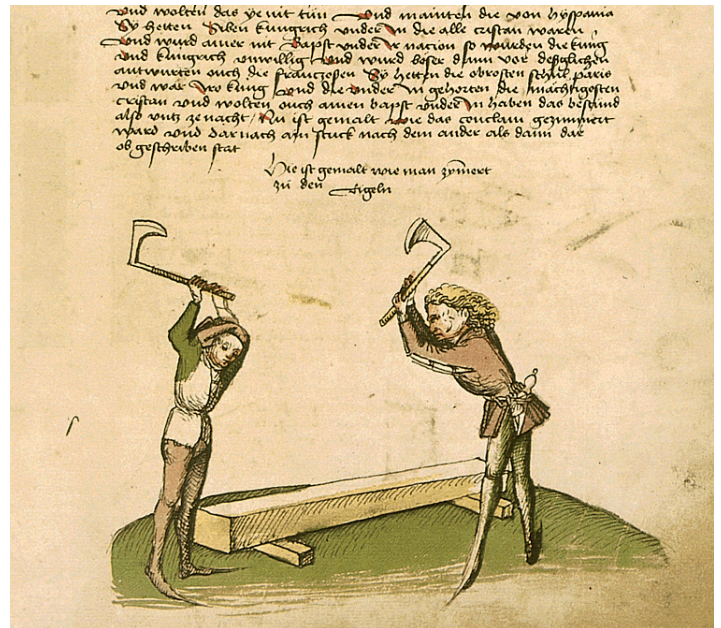 vnd wolten das ye nit tůn Vnd mainten die von hyspania
Sy hetten Siben kungrich vnder In die alle cristan waren
Vnd wurd ainer nit Bapst vnder Ir nacion so wurden die kung
vnd kungrich vnwillig Vnd wurd böser dann vor deßglichen
antwurten ouch die franczosen Sy hetten die obrosten schůl paris
vnd war Iro kung Vnd die vnder In gehorten die mächtigosten
cristan vnd wolten ouch ainen bapst vnder In haben das bestůnd
also vntz ze nacht / Nu ist gemalt wie das conclaui gezimmert
ward vnd dar nach ain stuck nach dem ander als dann dar
ob geschriben stat
Hie ist gemalt wie man zymert
zů den Sigeln